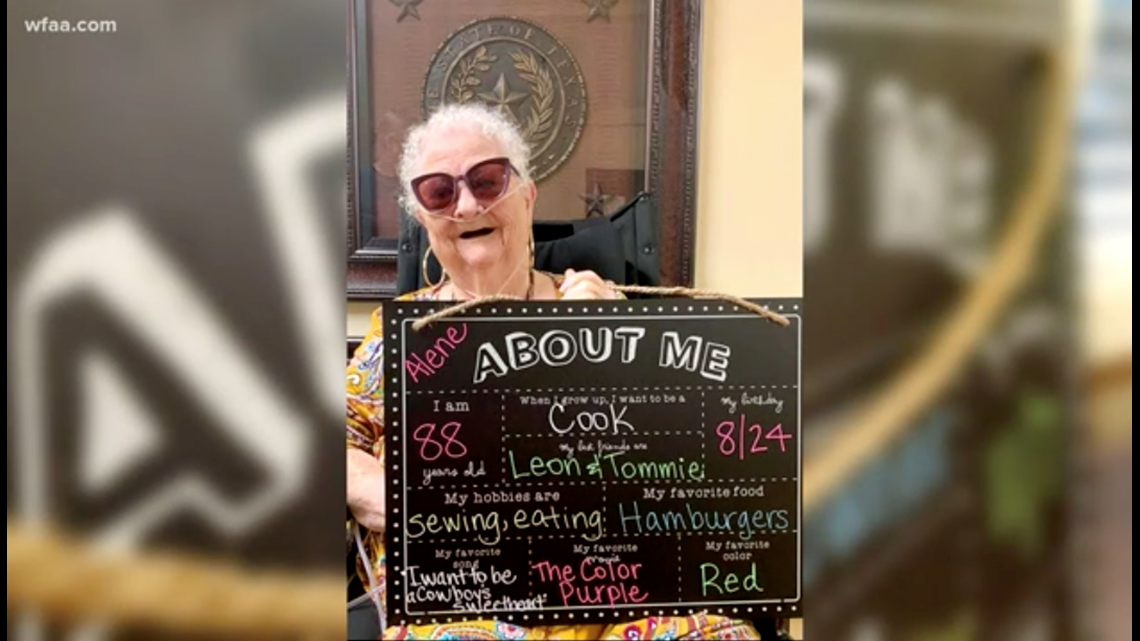 wfaa.com
THE STATE OF TEXAS
Alene
ABOUT ME
I am
88
years old
When I grow up, I want to be a
Cook
my best friends are
Leon & Tommie
my birthday
8/24
My hobbies are
sewing, eating
My favorite food
Hamburgers
My favorite
song
I want to be
a Cowboy's
Sweetheart
My favorite
movie
The Color
Purple
My favorite
color
Red